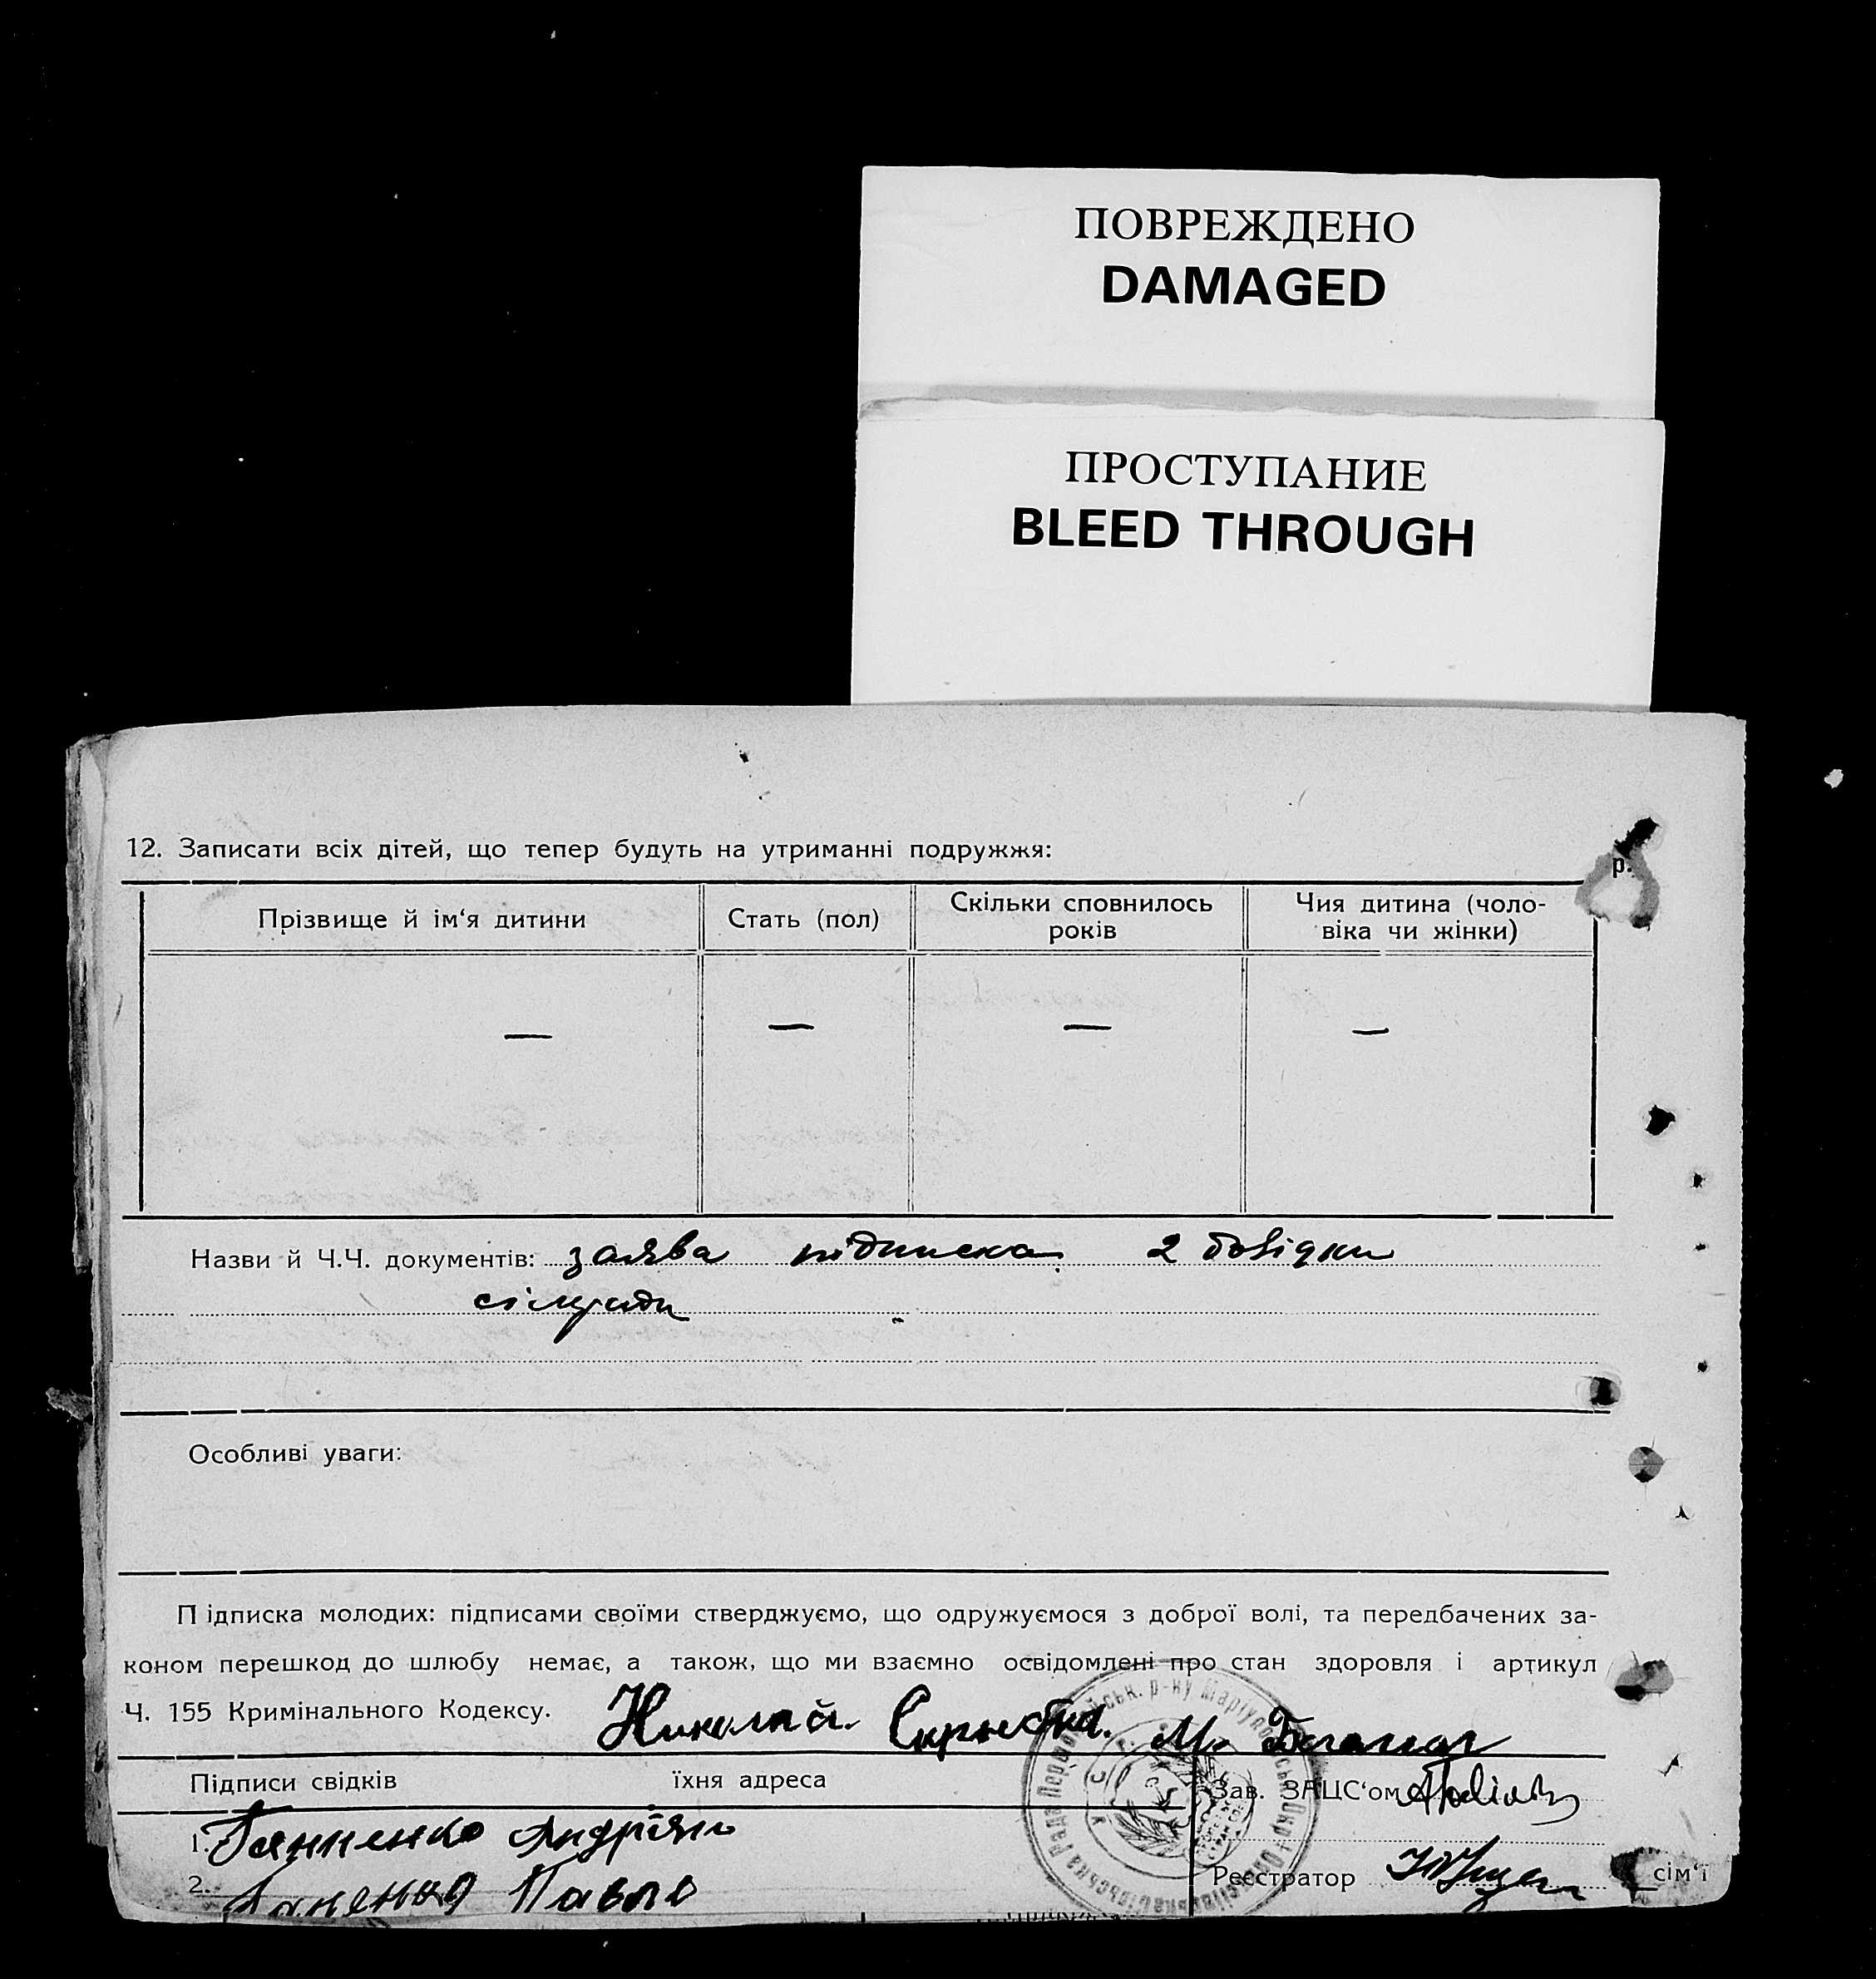 ПОВРЕЖДЕНО
DAMAGED
ПРОСТУПАНИЕ
BLEED THROUGH
12. Записати всіх дітей, що тепер будуть на утриманні подружжя:
р.
Прізвище й ім‘я дитини
Стать (пол)
Скільки сповнилось
років
Чия дитина (чоло-
віка чи жінки)
— — — —
Назви й Ч.Ч. документів: заява підписка 2 довідки
сільради
Особливі уваги:
П ідписка молодих: підписами своїми стверджуємо, що одружуємося з доброї волі, та передбачених за-
коном перешкод до шлюбу немає, а також, що ми взаємно освідомлені про стан здоровля і артикул
Ч. 155 Кримінального Кодексу. Николай М.
Підписи свідків їхня адреса
Зав. ЗАЦС‘ом
1. Андріян
2. Павло
Реєстратор
сім‘ї